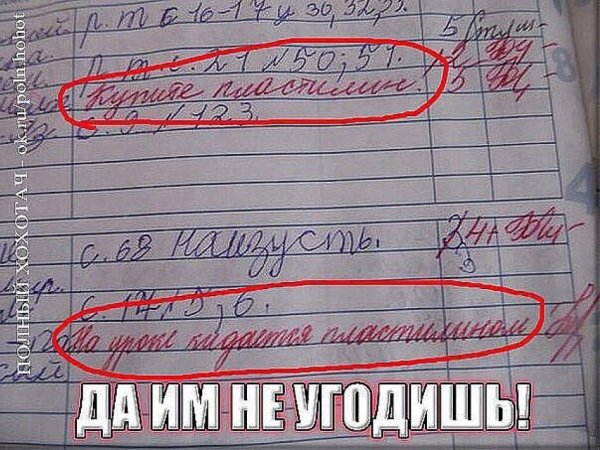 р.т с 16-17 у 30,32,33.
5
р.т с. 21 №50; 51.
Купите пластилин!
с. 9 №123.
с. 68 наизусть.
с. 17 №5; 6.
На уроке кидается пластилином
ДА ИМ НЕ УГОДИШЬ!
ПОЛНЫЙ ХОХОТАЧ - ok.ru/poln.hohot